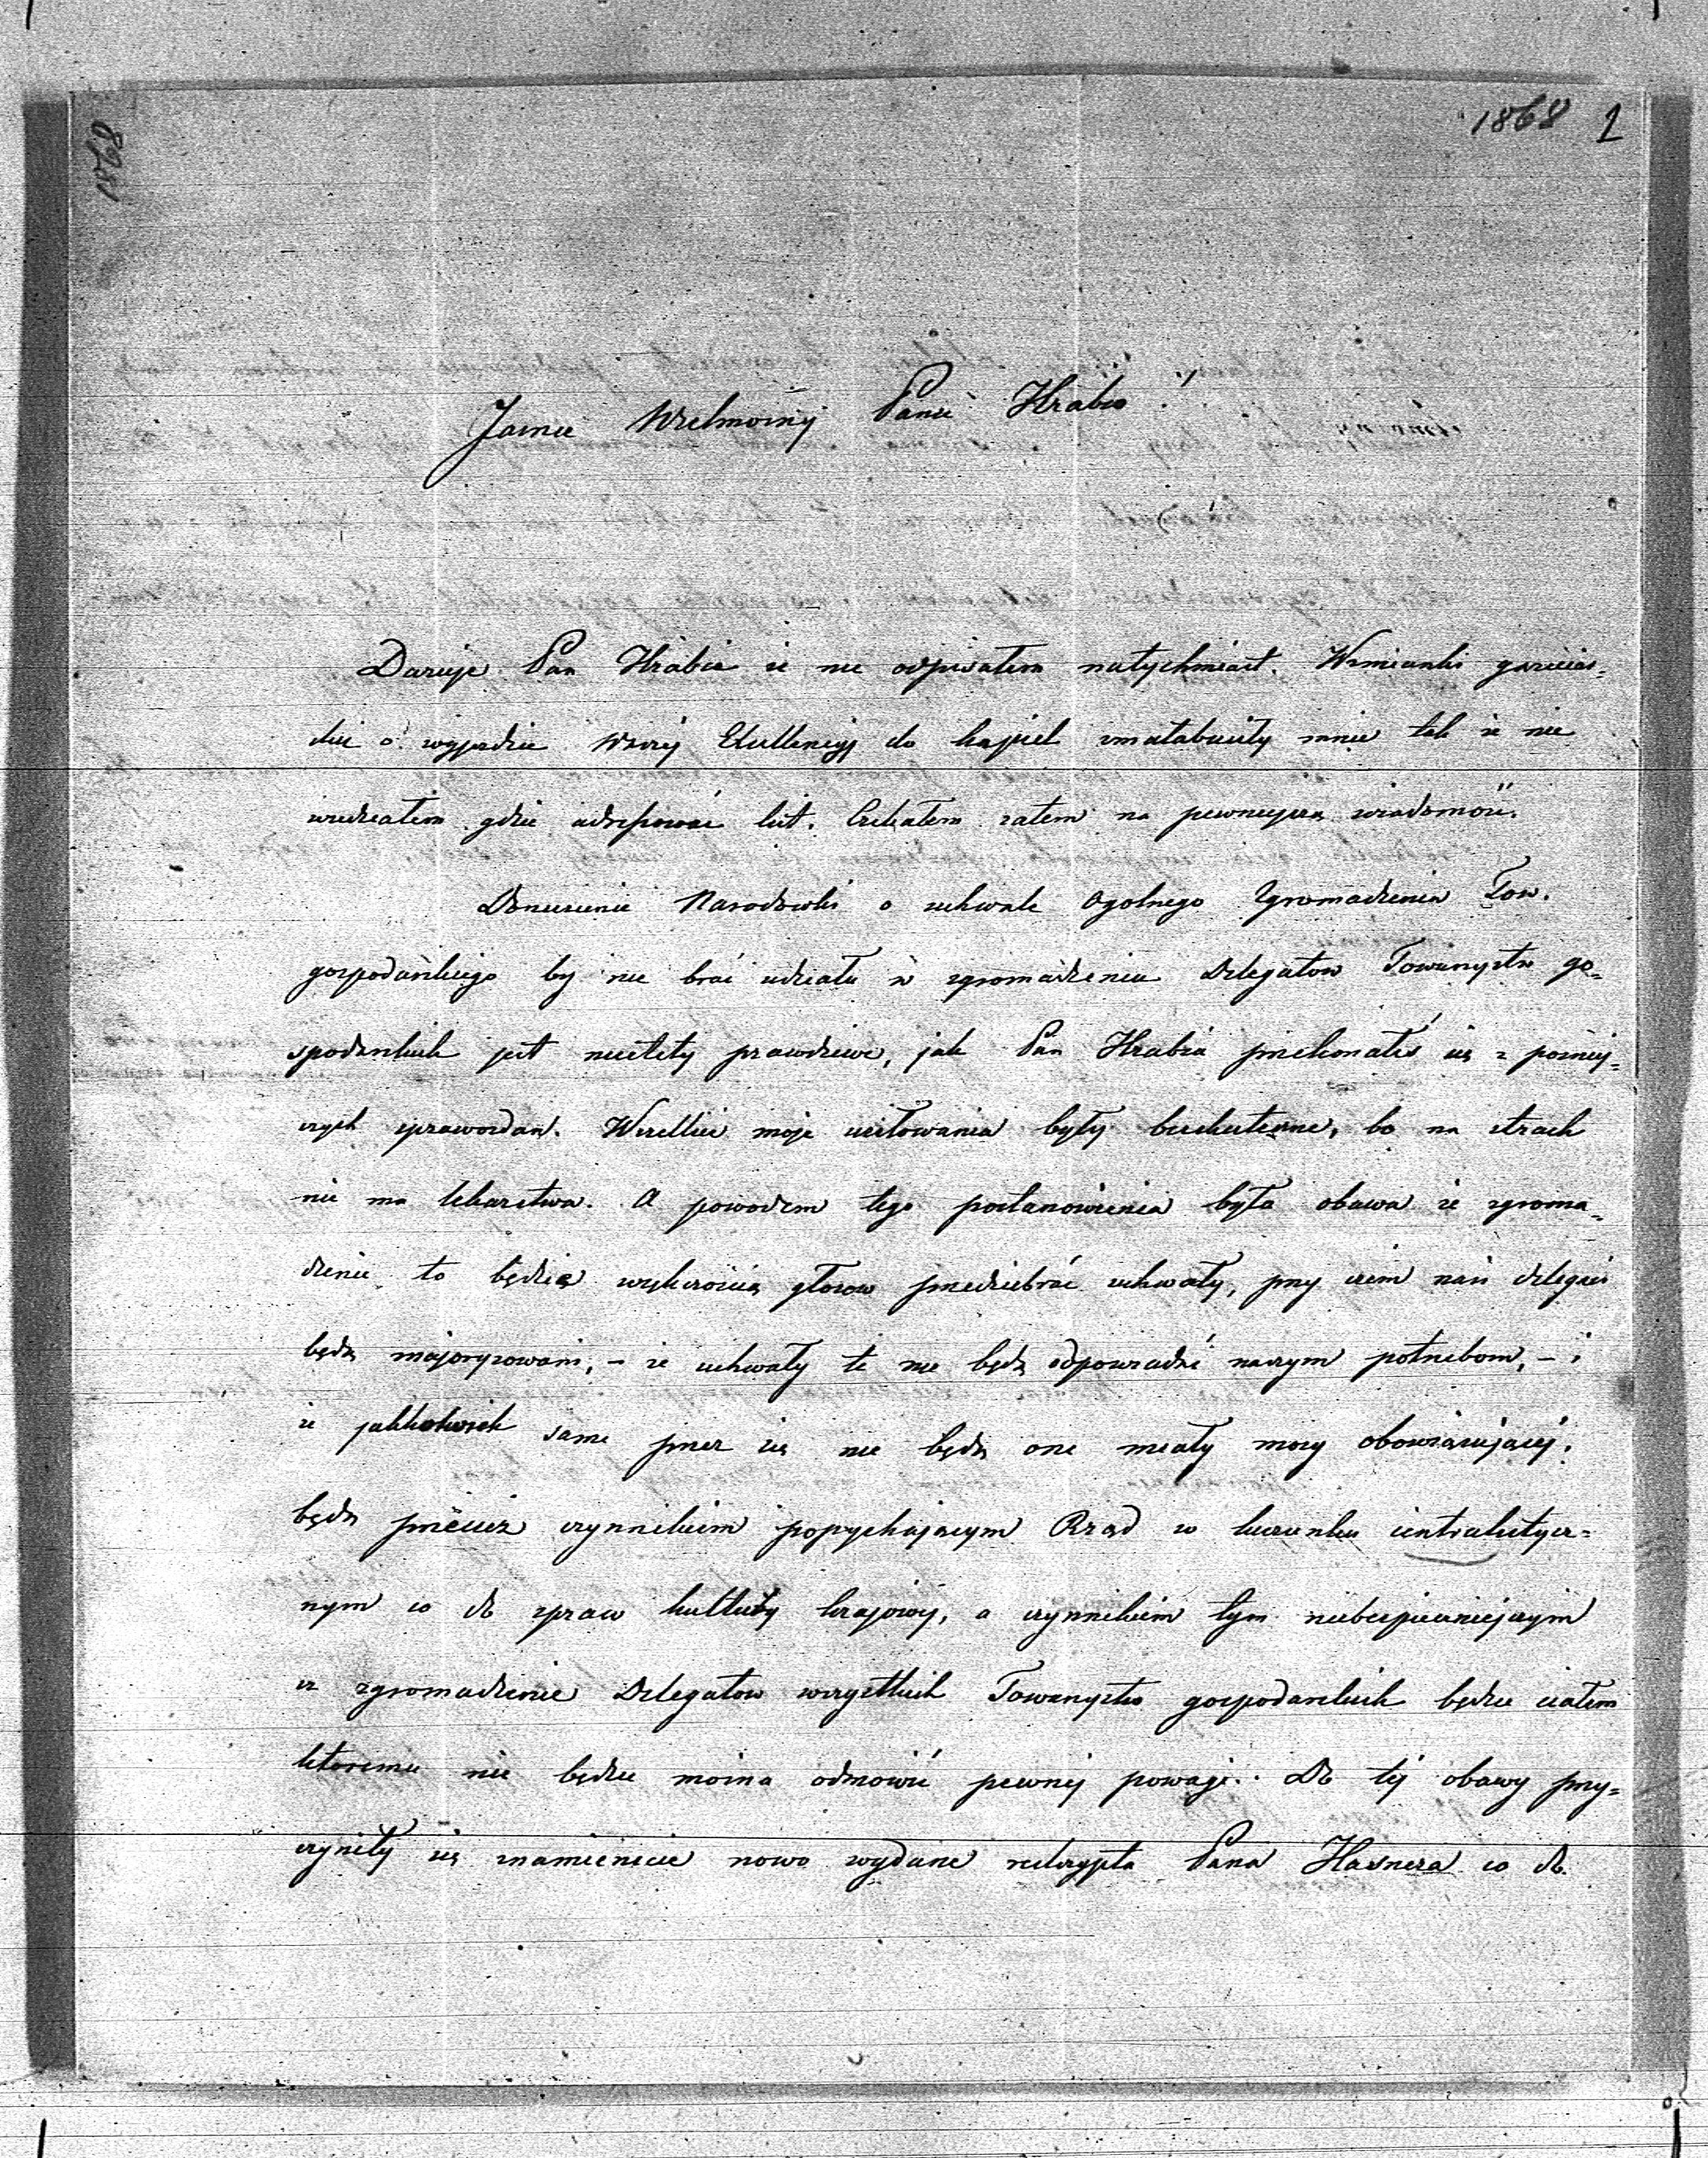 1868 1
1868
Jasnie Wielmożny Panie Hrabio!
Daruje Pan Hrabia że nie odpisałem natychmiast. Wzmianki gazeciar-
skie o wyjeździe Waszej Excellencyj do kąpiel zmałabuciły mnie tak że nie
wiedziałem gdzie adressować list. Czekałem zatem na pewniejszą wiadomość.
Doniesienie Narodowki o uchwale Ogolnego Zgromadzenia Tow.
gospodarskiego by nie brać udziału w zgromadzeniu Delegatow Towarzystw go-
spodarskich jest niestety prawdziwe, jak Pan Hrabia przekonałeś się z pozniej-
szych sprawozdan. Wszelkie moje usiłowania były bezskuteczne, bo na strach
nie ma lekarstwa. A powodem tego postanowienia była obawa że zgroma-
dzenie to będzie większością głosow przedziebrać uchwały, przy czem nasi delegaci
będą majoryzowani, – że uchwały te nie będą odpowiadać naszym potrzebom, – i
że jakkolwiek same przez się nie będą one miały mocy obowiązującej,
będą przecież czynnikiem popychającym Rząd w kierunku centralistycz-
nym co do spraw kultury krajowej, a czynnikiem tym niebezpieczniejszym
iż zgromadzenie Delegatow wszystkich Towarzystw gospodarskich będzie ciałem
ktoremu nie będzie można odmowić pewnej powagi. Do tej obawy przy-
czyniły się znamienicie nowo wydane reskrypta Pana Hasnera co do